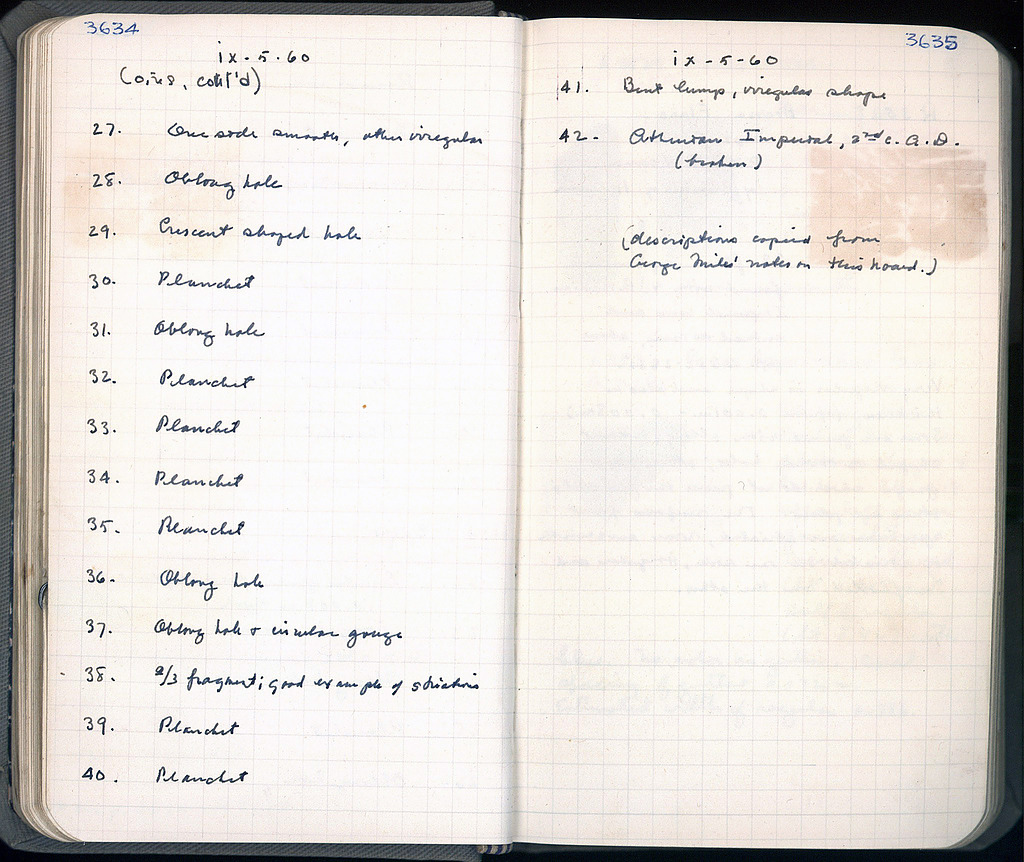 3634
ix-5-60
(Coins, cont'd)
27. One side smooth, other irregular
28. Oblong hole
29. Crescent shaped hole
30. Planchet
31. Oblong hole
32. Planchet
33. Planchet
34. Planchet
35. Planchet
36. Oblong hole
37. Oblong hole + circular gouge
38. 2/3 fragment; good example of striations
39. Planchet
40. Planchet
3635
ix-5-60
41. Bent lump, irregular shape
42. Athenian Imperial, 2nd c. A.D.
(broken)
(descriptions copied from
George Miles' notes on this hoard.)